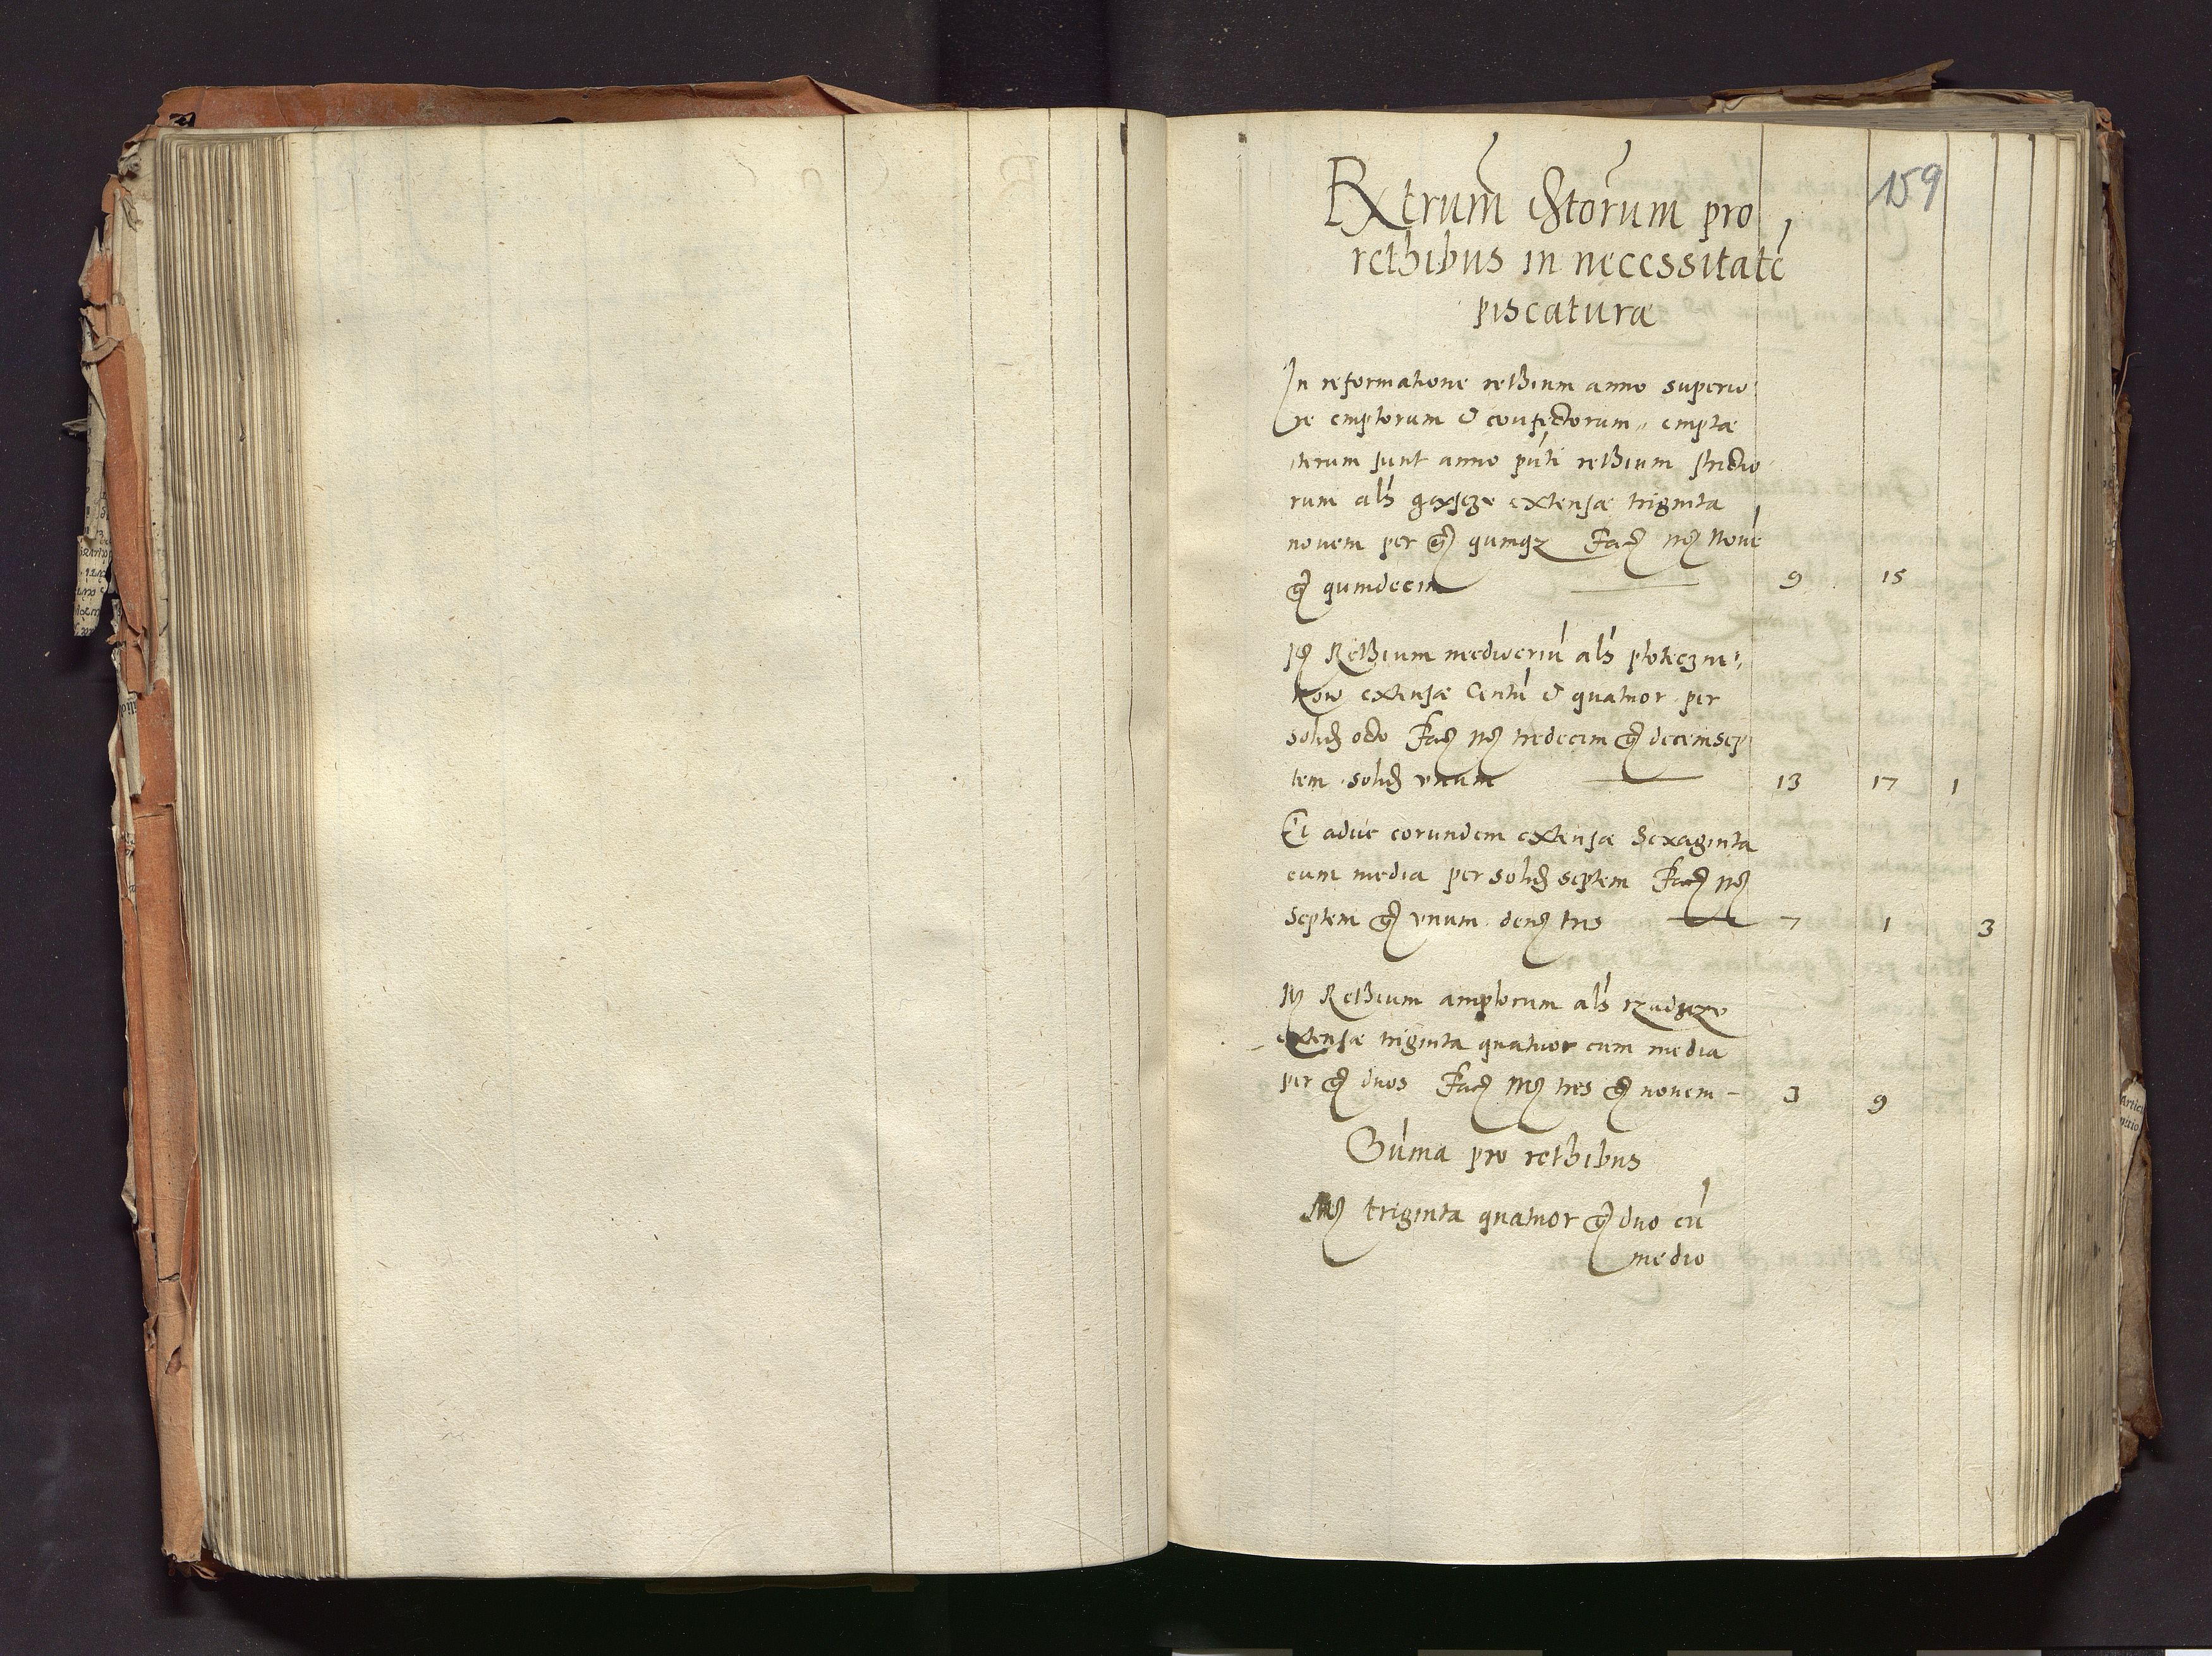 159
Extrum Extorum pro
rethibus in necessitatē
piscaturæ
In reformatione rethium anno superio
re emptorum & confectorum, emptæ
iterum sunt anno pn̄ti rethium strictio
rum als gęszcze extensæ triginta
novem per gͬ quinqz Facͭ mͬ nouē
gͬ quindecim 9 15
Mͬ Rethium mediocriū als ploteczni,
kow extensæ Centū & quatuor per
solidͬ octo Facͭ mͬ tredecim gͬ decemsep
tem solidͬ vnum 13 17 1
Et aduc eorundem extensæ Sexaginta
cum media per solidͬ septem Facͭ mͬ
Septem gͬ vnum denͬ tres 7 1 3
Mͬ Rethium amplorum als rzadsze
extensæ triginta quatuor cum media
per gͬ duos Facͭ Mͬ tres gͬ novem 3 9
Sūma pro rethibus
Mͬ triginta quatuor gͬ duo cū
medio